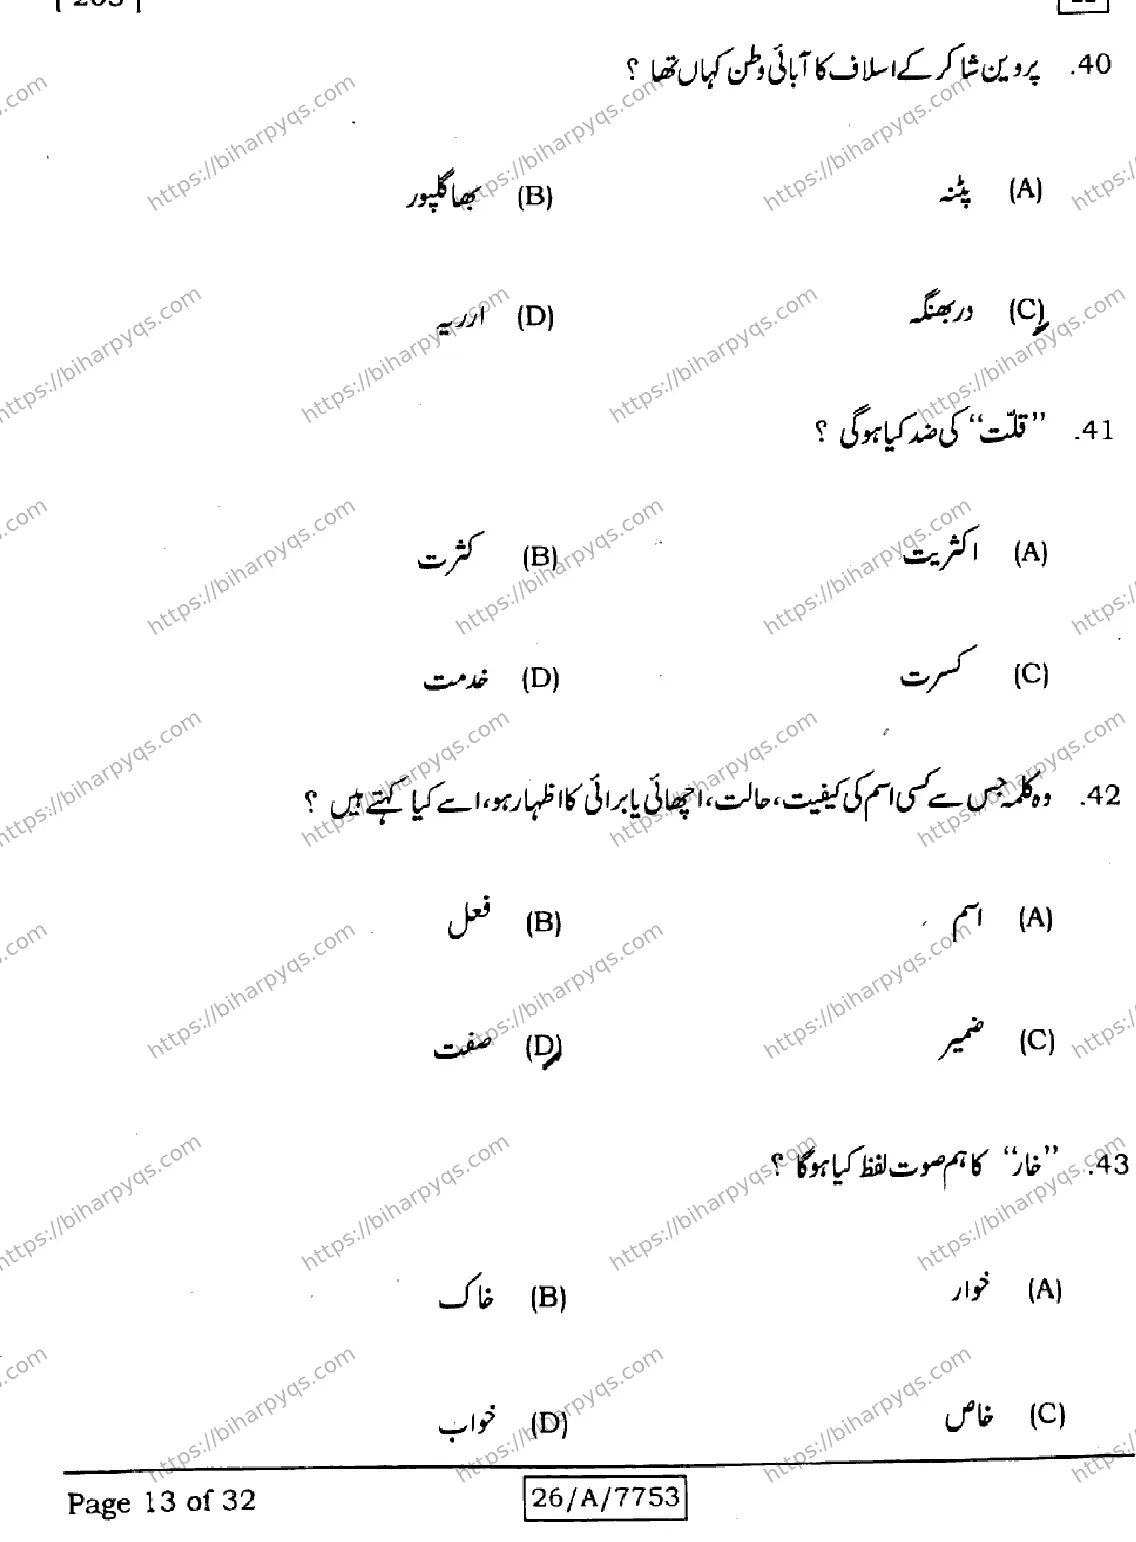 205
40. پروین شاکر کے اسلاف کا آبائی وطن کہاں تھا ؟
(A) پٹنہ (B) بھاگلپور
(C) دربھنگہ (D) ارریہ
41. ”قلّت“ کی ضد کیا ہوگی ؟
(A) اکثریت (B) کثرت
(C) کسرت (D) خدمت
42. وہ کلمہ جس سے کسی اسم کی کیفیت، حالت، اچھائی یا برائی کا اظہار ہو، اسے کیا کہتے ہیں ؟
(A) اسم (B) فعل
(C) ضمیر (D) صفت
43. ”خار“ کا ہم صوت لفظ کیا ہوگا ؟
(A) خوار (B) خاک
(C) خاص (D) خواب
Page 13 of 32 26/A/7753
https://biharpyqs.com